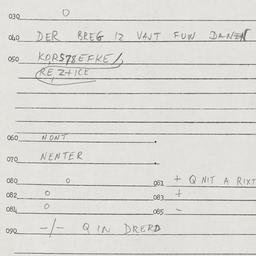 030 0
040 DER BREG IZ VAJT FUN DANEN
050 KORS578EFKE/
RE,Z+ICE
060 NONT
070 NENTER
080 0 081 + Q NIT A RIXT
082 0 083 +
084 0 085 -
090 -/- Q IN DRERD